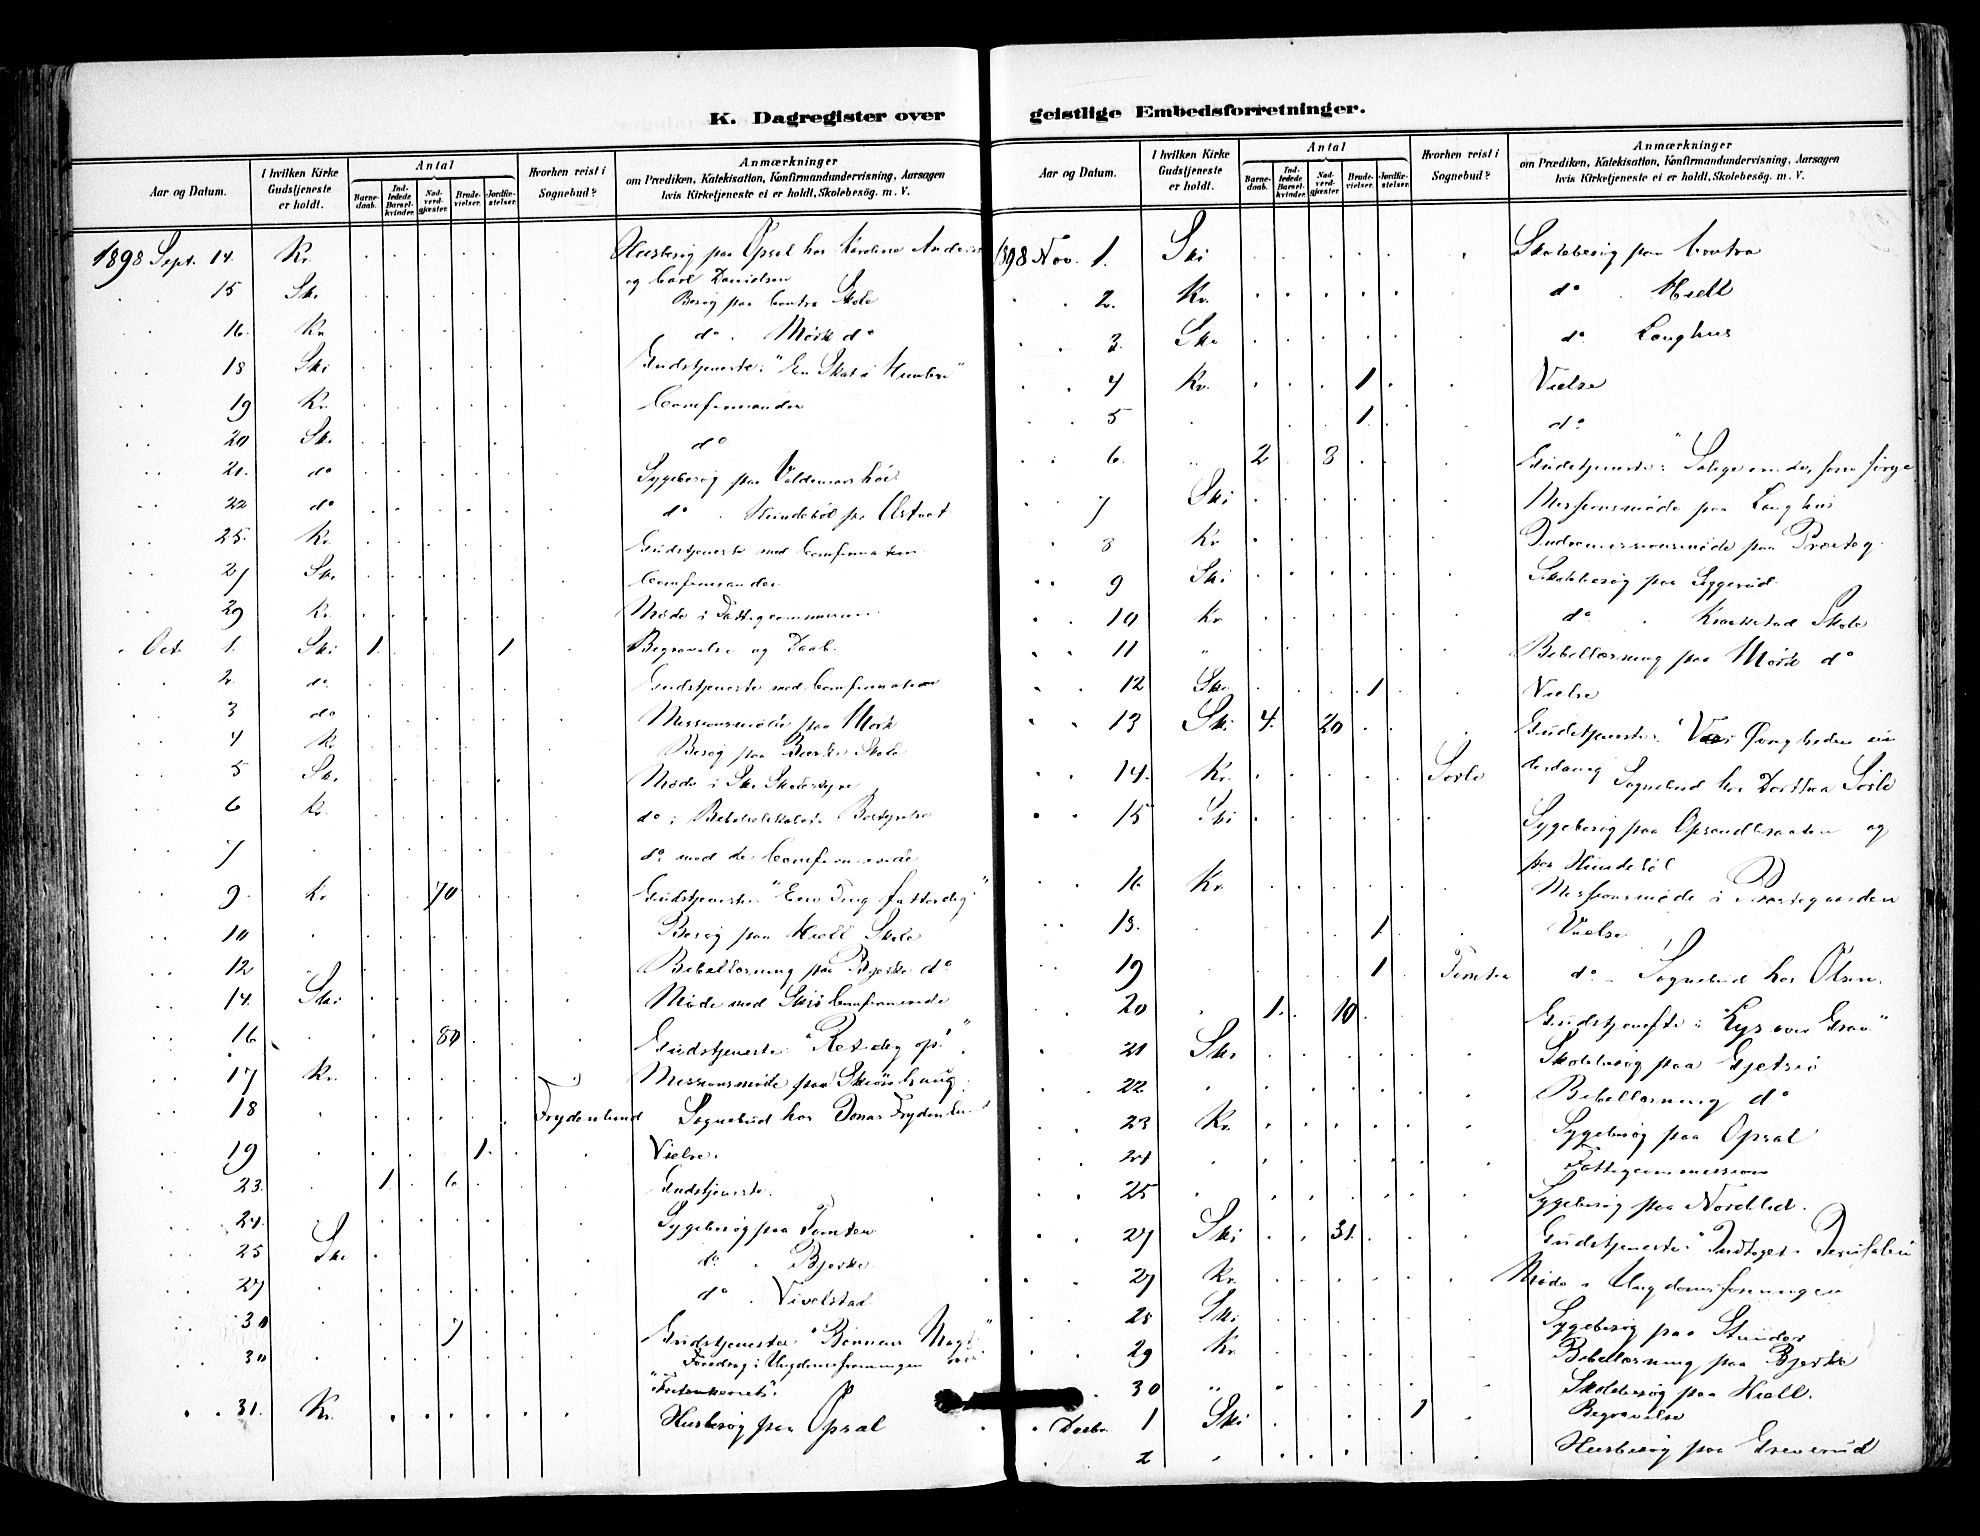 K. Dagregister over
Aar og Datum.
I hvilken Kirke Gudstjeneste er holdt.
Antal
Barnedaab.
Indledede Barselkvinder.
Nadverdgjæster.
Brudevielser.
Jordfæstelser.
Hvorhen reist i Sognebud?
Anmærkninger
om Prædiken, Katekisation, Konfirmandundervisning, Aarsagen
hvis Kirketjeneste ei er holdt, Skolebesøg. m. V.
1898 Sept. 14. Kr. Husbesøg paa Opsal hos Karoline
og Carl Danielsen
15 Ski Besøg paa Contra Skole
16. Kr. do. Mørk do
18 Ski Gudstjeneste: "En Skat i Himlene"
19 Kr. Confirmander
20 Ski do
21. do Sygebesøg paa Valdemarshøi
22 do do
25. Kr. Gudstjeneste med Confirmation
27 Ski Confirmander
29 Kr. Møde i Fattigcommissionen
Oct. 1. Ski 1. 1 Begravelse og Daab.
2. do. Gudstjeneste med Confirmation
3 do Missionsmøde paa Mørk
4 Kr. Besøg paa Bjerke Skole
5 Ski Møde i Ski Skolestyre
6 Kr. do i Bestyrelse
7 do med de Confirmerede
9. Kr 70 Gudstjeneste: "Een Ting fattes dig"
10 Besøg paa Kjell Skole
12 Bibellæsning paa Bjerke do
14. Ski Møde med Ski Confirmerede
16 80 Gudstjeneste: "Ret dig op!"
17 Kr. Missionsmøde paa
18 Frydenlund Sognebud hos Jonas
19 1. Vielse.
23. 1. 6 Gudstjeneste.
24. Sygebesøg paa Tomten
25 Ski do. Bjerke
27 do. Vivelstad
30 7 Gudstjeneste: "Bønnens Magt"
30 Foredrag i Ungdomsforeningen
31. Kr. Husbesøg paa Opsal
geistlige Embedsforretninger.
Aar og Datum.
I hvilken Kirke Gudstjeneste er holdt.
Antal
Barnedaab.
Indledede Barselkvinder.
Nadverdgjæster.
Brudevielser.
Jordfæstelser.
Hvorhen reist i Sognebud?
Anmærkninger
om Prædiken, Katekisation, Konfirmandundervisning, Aarsagen
hvis Kirketjeneste ei er holdt, Skolebesøg. m. V.
1898 Nov. 1. Ski Skolebesøg paa Contra
2. Kr. do. Kjell
3. Ski do Langhus
4 Kr. 1 Vielse
5 1. do.
6. 2 3 Gudstjeneste: "Salige ere de, som sørge
7 Ski Missionsmøde paa Langhus
8 Kr. Indremissionsmøde paa
9 Ski Skolebesøg paa Siggerud
10 Kr. do. Kraakstad Skole
11 " Bibellæsning paa Mørk do
12 Ski 1 Vielse
13 Ski 4. 20 Gudstjeneste:
14. Kr. Sognebud hos
15 Ski Sygebesøg paa og
paa
16 Kr. Missionsmøde i Præstegaarden
18. 1 Vielse
19 1 Tomter do. Sognebud hos Olsen.
20 1. 10 Gudstjeneste: "Lys over Grav"
21 Ski Skolebesøg paa Gjetsjø
22 Bibellæsning do
23 Kr. Sygebesøg paa Opsal
24 Fattigcommission
25 Sygebesøg paa Nordlid.
27 Ski 31. Gudstjeneste: "Indtoget i Jerusalem
27 Kr. Møde i Ungdomsforeningen
28 Ski Sygebesøg paa
29 Kr. Bibellæsning paa Bjerke
30 " Skolebesøg paa Kjell.
Decbr. 1 Ski 1 Begravelse
2 Husbesøg paa Greverud